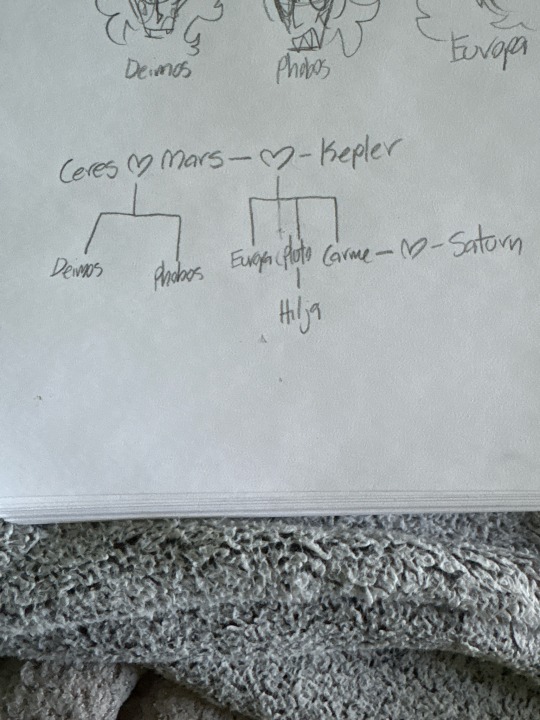 Deimos Phobos Europa
Ceres ♡ Mars - ♡ - Kepler
Deimos Phobos Europa Pluto Carme - ♡ - Saturn
Hilja